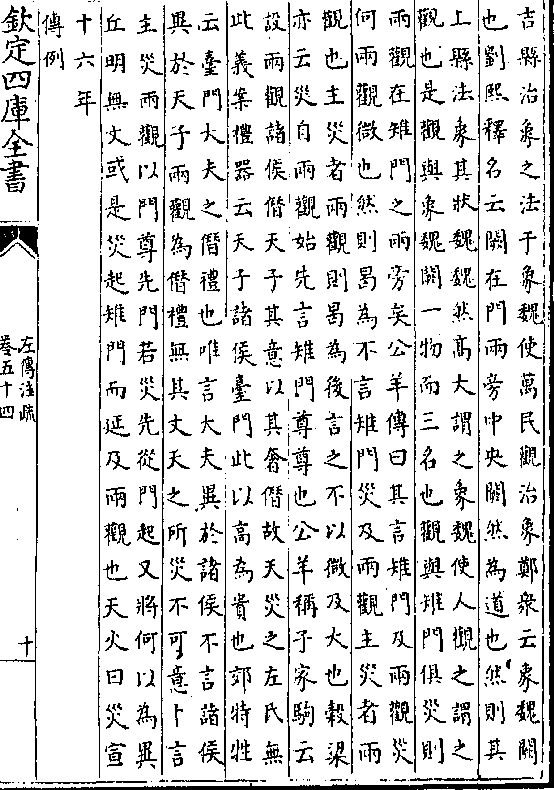 吉縣治象之法于象魏使萬民觀治象鄭衆云象魏闕
也劉熙釋名云闕在門兩旁中央闕然為道也然則其
上縣法象其狀魏魏然髙大謂之象魏使人觀之謂之
觀也是觀與象魏闕一物而三名也觀與雉門俱災則
兩觀在雉門之兩旁矣公羊傳曰其言雉門及兩觀災
何兩觀微也然則曷為不言雉門災及兩觀主災者兩
觀也主災者兩觀則曷為後言之不以微及大也榖梁
亦云災自兩觀始先言雉門尊尊也公羊稱子家駒云
設兩觀諸侯僭天子其意以其奢僭故天災之左氏無
此義案禮器云天子諸侯臺門此以髙為貴也郊特牲
云臺門大夫之僭禮也唯言大夫異於諸侯不言諸侯
異於天子兩觀為僭禮無其文天之所災不可意卜言
主災兩觀以門尊先門若災先從門起又將何以為異
丘明無文或是災起雉門而延及兩觀也天火曰災宣
十六年
傳例
欽定四庫全書
左傳注疏
卷五十四
十